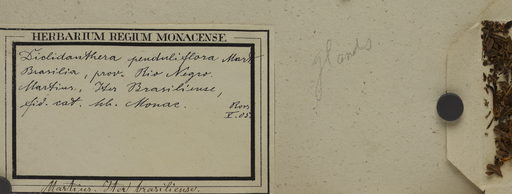 HERBARIUM REGIUM MONACENSE.
Diclidanthera penduliflora Mart
Brasilia, prov. Rio Negro.
Martius, Iter Brasiliense,
fid. cat. hb. Monac.
Ross
V. 05.
Martius. Iter brasiliense.
glands